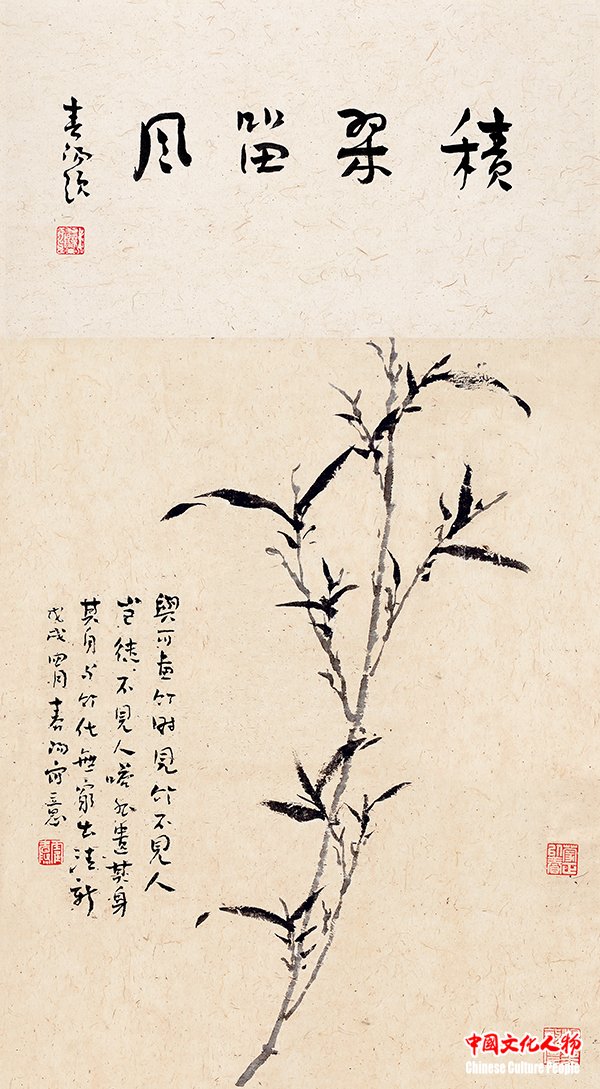 積翠留風
與可畫竹時見竹不見人
豈徒不見人嗒然遺其身
其身与竹化無窮出清新
戊戌四月春陽寫意
中國文化人物
Chinese Culture People